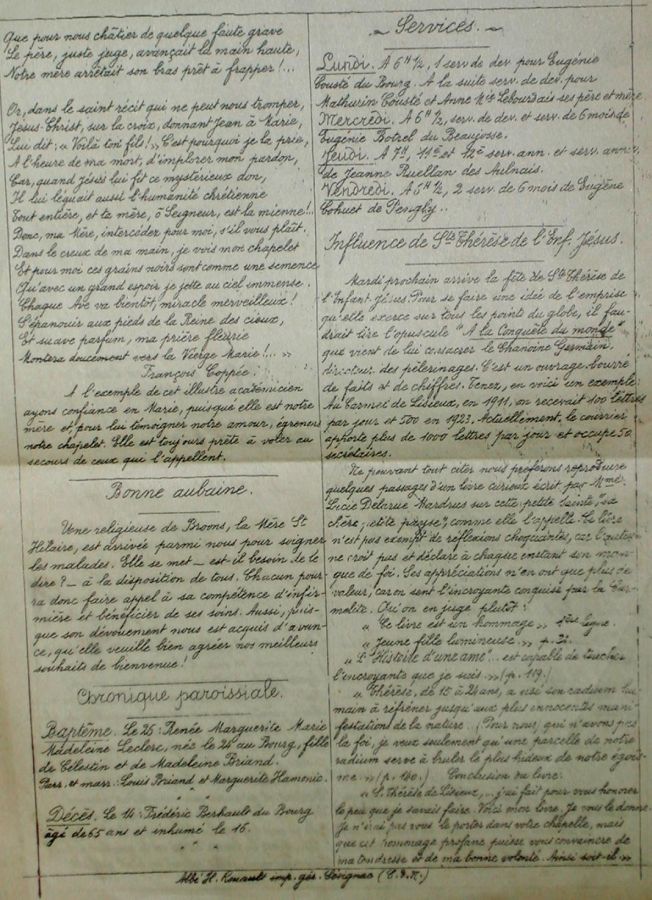 Que pour nous châtier de quelque faute grave
Le père, juste juge, avançait la main haute,
Notre mère arrêtait son bras prêt à frapper !...
Or, dans le saint récit qui ne peut nous tromper,
Jésus-Christ, sur la croix, donnant Jean à Marie,
Lui dit : « Voilà ton fils ! » C'est pourquoi je la prie,
A l'heure de ma mort, d'implorer mon pardon,
Car, quand Jésus lui fit ce mystérieux don,
Il lui léguait aussi l'humanité chrétienne
Tout entière, et ta mère, ô Seigneur, est la mienne !..
Donc, ma Mère, intercédez pour moi, s'il vous plaît.
Dans le creux de ma main, je vois mon chapelet
Et pour moi ces grains noirs sont comme une semence
Qu'avec un grand espoir je jette au ciel immense.
Chaque Ave va bientôt, miracle merveilleux !
S'épanouir aux pieds de la Reine des cieux,
Et suave parfum, ma prière fleurie
Montera doucement vers la Vierge Marie !... »
François Coppée.
A l'exemple de cet illustre académicien
ayons confiance en Marie, puisque elle est notre
mère et, pour lui témoigner notre amour, égrenons
notre chapelet. Elle est toujours prête à voler au
secours de ceux qui l'appellent.
Bonne aubaine.
Une religieuse de Broons, la Mère St
Hilaire, est arrivée parmi nous pour soigner
les malades. Elle se met — est-il besoin de le
dire ? — à la disposition de tous. Chacun pour-
ra donc faire appel à sa compétence d'infir-
mière et bénéficier de ses soins. Aussi, puis-
que son dévouement nous est acquis d'avan-
ce, qu'elle veuille bien agréer nos meilleurs
souhaits de bienvenue !
Chronique paroissiale.
Baptême. Le 25 : Renée Marguerite Marie
Madeleine Leclerc, née le 24 au Bourg, fille
de Célestin et de Madeleine Briand.
Parr. et marr. : Louis Briand et Marguerite Hamonic.
Décès. Le 14 : Frédéric Berhault du Bourg
âgé de 65 ans et inhumé le 16.
Services.
Lundi. A 6 H ½, 1 serv. de dev. pour Eugénie
Cousté du Bourg. A la suite serv. de dev. pour
Mathurin Cousté et Anne Mie Lebourdais ses père et mère
Mercredi. A 6 H ½, serv. de dev. et serv. de 6 mois de
Eugénie Botrel du Beaujosse.
Jeudi. A 7 H, 11e et 12e serv. ann. et serv. ann.
de Jeanne Ruellan des Aulnais.
Vendredi. A 6 H ½, 2 serv. de 6 mois de Eugène
Cohuet de
Influence de Ste Thérèse de l'Enf. Jésus.
Mardi prochain arrive la fête de Ste Thérèse de
l'Enfant Jésus. Pour se faire une idée de l'emprise
qu'elle exerce sur tous les points du globe, il fau-
drait lire l'opuscule "A la Conquête du monde"
que vient de lui consacrer le Chanoine Germain,
directeur des pèlerinages. C'est un ouvrage bourré
de faits et de chiffres. Tenez, en voici un exemple
Au Carmel de Lisieux, en 1911, on recevait 100 lettres
par jour et 500 en 1923. Actuellement, le courrier
apporte plus de 1000 lettres par jour et occupe 50
secrétaires.
Ne pouvant tout citer nous préférons reproduire
quelques passages d'un livre curieux écrit par Mme
Lucie Delarue Mardrus sur cette petite Sainte, "sa
chère petite payse", comme elle l'appelle. Ce livre
n'est pas exempt de réflexions choquantes, car l'auteur
ne croit pas et déclare à chaque instant son man-
que de foi. Ses appréciations n'en ont que plus de
valeur, car on sent l'incroyante conquise par la Car-
mélite. Qu'on en juge plutôt :
« Ce livre est un hommage » 1ère ligne.
« Jeune fille lumineuse... » p. 32.
« L'Histoire d'une âme"... est capable de toucher
l'incroyante que je suis » (p. 119)
« Thérèse, de 15 à 24 ans, a usé son radium hu-
main à réfréner jusqu'aux plus innocentes mani-
festations de la nature... (Pour nous, qui n'avons pas
la foi, je veux seulement qu'une parcelle de notre
radium serve à brûler le plus hideux de notre égoïs-
me » (p. 140.) Conclusion du livre.
« St. Thérèse de Lisieux, ... j'ai fait pour vous honorer
le peu que je savais faire. Voici mon livre. Je vous le donne.
Je n'irai pas vous le porter dans votre chapelle, mais
que cet hommage profane puisse vous convaincre de
ma tendresse et de ma bonne volonté. Ainsi soit-il »
Abbé H. Renault imp. gér. Sévignac (C.d.N.)